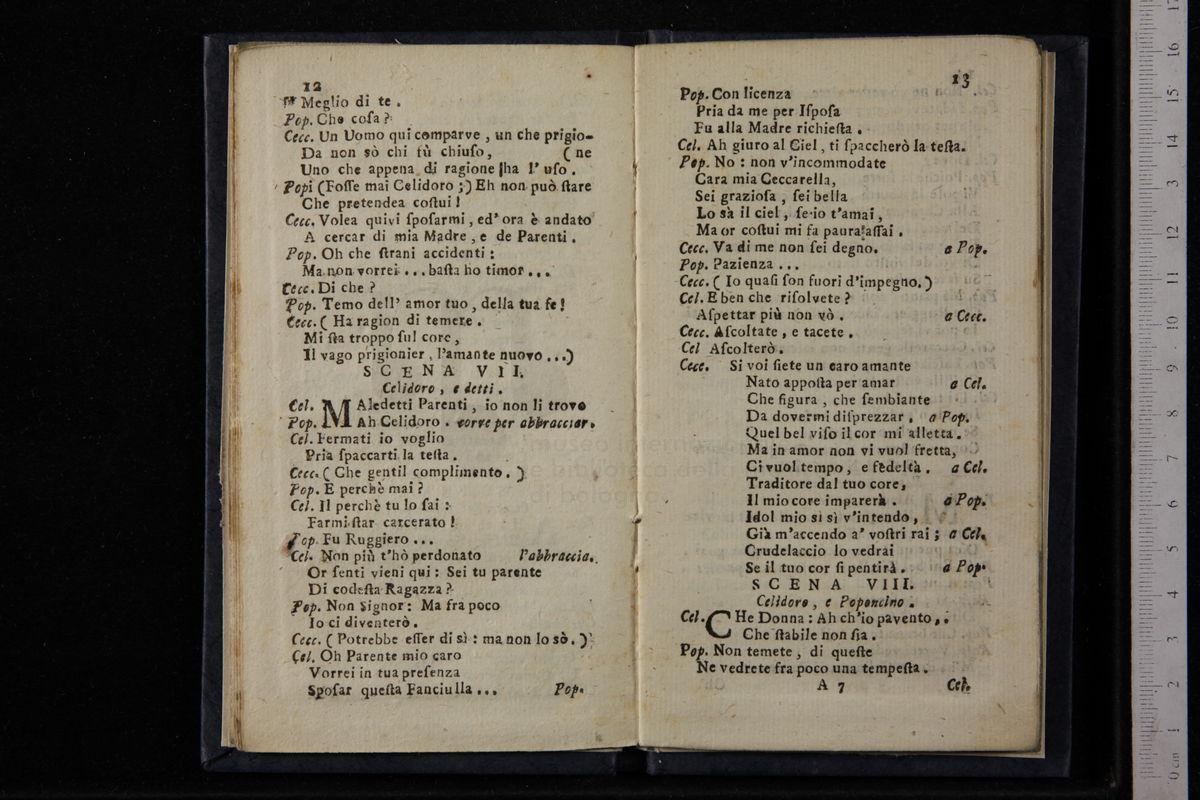 12
Meglio di te .
Pop. Che coſa ?
Cecc. Un Uomo qui comparve , un che prigio-
Da non sò chi tù chiuſo, ( ne
Uno che appena di ragione ha l' uſo .
Popi (Foſſe mai Celidoro ;) Eh non può ſtare
Che pretendea coſtui !
Cecc. Volea quivi ſpoſarmi , ed' ora è andato
A cercar di mia Madre , e de Parenti .
Pop. Oh che ſtrani accidenti :
Ma non vorrei ... baſta ho timor ...
Cecc. Di che ?
Pop. Temo dell' amor tuo , della tua fe !
Cecc. ( Ha ragion di temere .
Mi ſta troppo ful core ,
Il vago prigionier , l'amante nuovo ...)
SCENA VII.
Celidoro , e detti .
Cel. MAledetti Parenti , io non li trovo
Pop. Ah Celidoro . corre per abbracciar.
Cel. Fermati io voglio
Pria ſpaccarti la teſta .
Cecc. ( Che gentil complimento . )
Pop. E perchè mai ?
Cel. Il perchè tu lo ſai :
Farmi ſtar carcerato !
Pop. Fu Ruggiero ...
Cel. Non più t'hò perdonato l'abbraccia.
Or ſenti vieni qui : Sei tu parente
Di codeſta Ragazza ?
Pop. Non Signor : Ma fra poco
Io ci diventerò .
Cecc. ( Potrebbe eſſer di sì : ma non lo sò . )
Cel. Oh Parente mio caro
Vorrei in tua preſenza
Spoſar queſta Fanciulla ... Pop.
13
Pop. Con licenza
Pria da me per Iſpoſa
Fu alla Madre richieſta .
Cel. Ah giuro al Ciel , ti ſpaccherò la teſta.
Pop. No : non v'incommodate
Cara mia Ceccarella,
Sei grazioſa , ſei bella
Lo sà il ciel , ſe io t'amai ,
Ma or coſtui mi fa paura aſſai .
Cecc. Va di me non ſei degno. a Pop.
Pop. Pazienza ...
Cecc. ( Io quaſi ſon fuori d'impegno. )
Cel. E ben che riſolvete ?
Aſpettar più non vò . a Cecc.
Cecc. Aſcoltate , e tacete .
Cel Aſcolterò .
Cecc. Si voi ſiete un caro amante
Nato appoſta per amar a Cel.
Che figura , che ſembiante
Da dovermi diſprezzar . a Pop.
Quel bel viſo il cor mi alletta .
Ma in amor non vi vuol fretta,
Ci vuol tempo , e fedeltà . a Cel.
Traditore dal tuo core,
Il mio core imparerà . a Pop.
Idol mio si sì v'intendo ,
Già m'accendo a' voſtri rai ; a Cel.
Crudelaccio lo vedrai
Se il tuo cor ſi pentirà . a Pop.
SCENA VIII.
Celidoro , e Poponcino .
Cel. CHe Donna : Ah ch'io pavento , .
Che ſtabile non ſia .
Pop. Non temete , di queſte
Ne vedrete fra poco una tempeſta .
A 7 Cel.